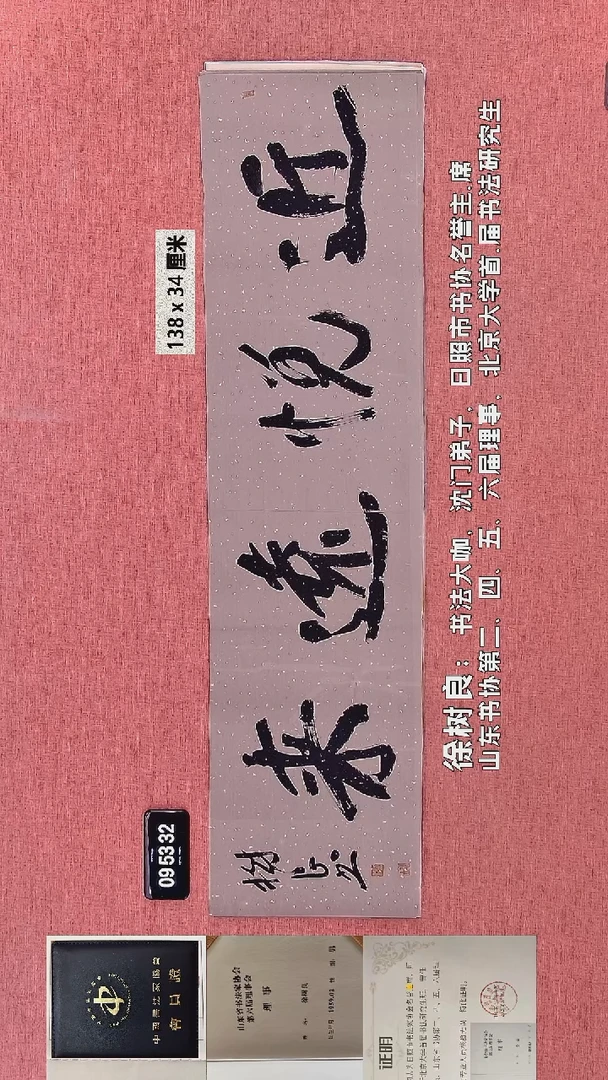 138 x 34 厘米
近悦远来
树良
徐树良：书法大咖，沈门弟子，日照市书协名誉主.席
山东书协第二、四、五、六届理事，北京大学首.届书法研究生
09 53 32
中国书法家协会
會員證
山东省书法家协会
第六届理事会
理 事
证明